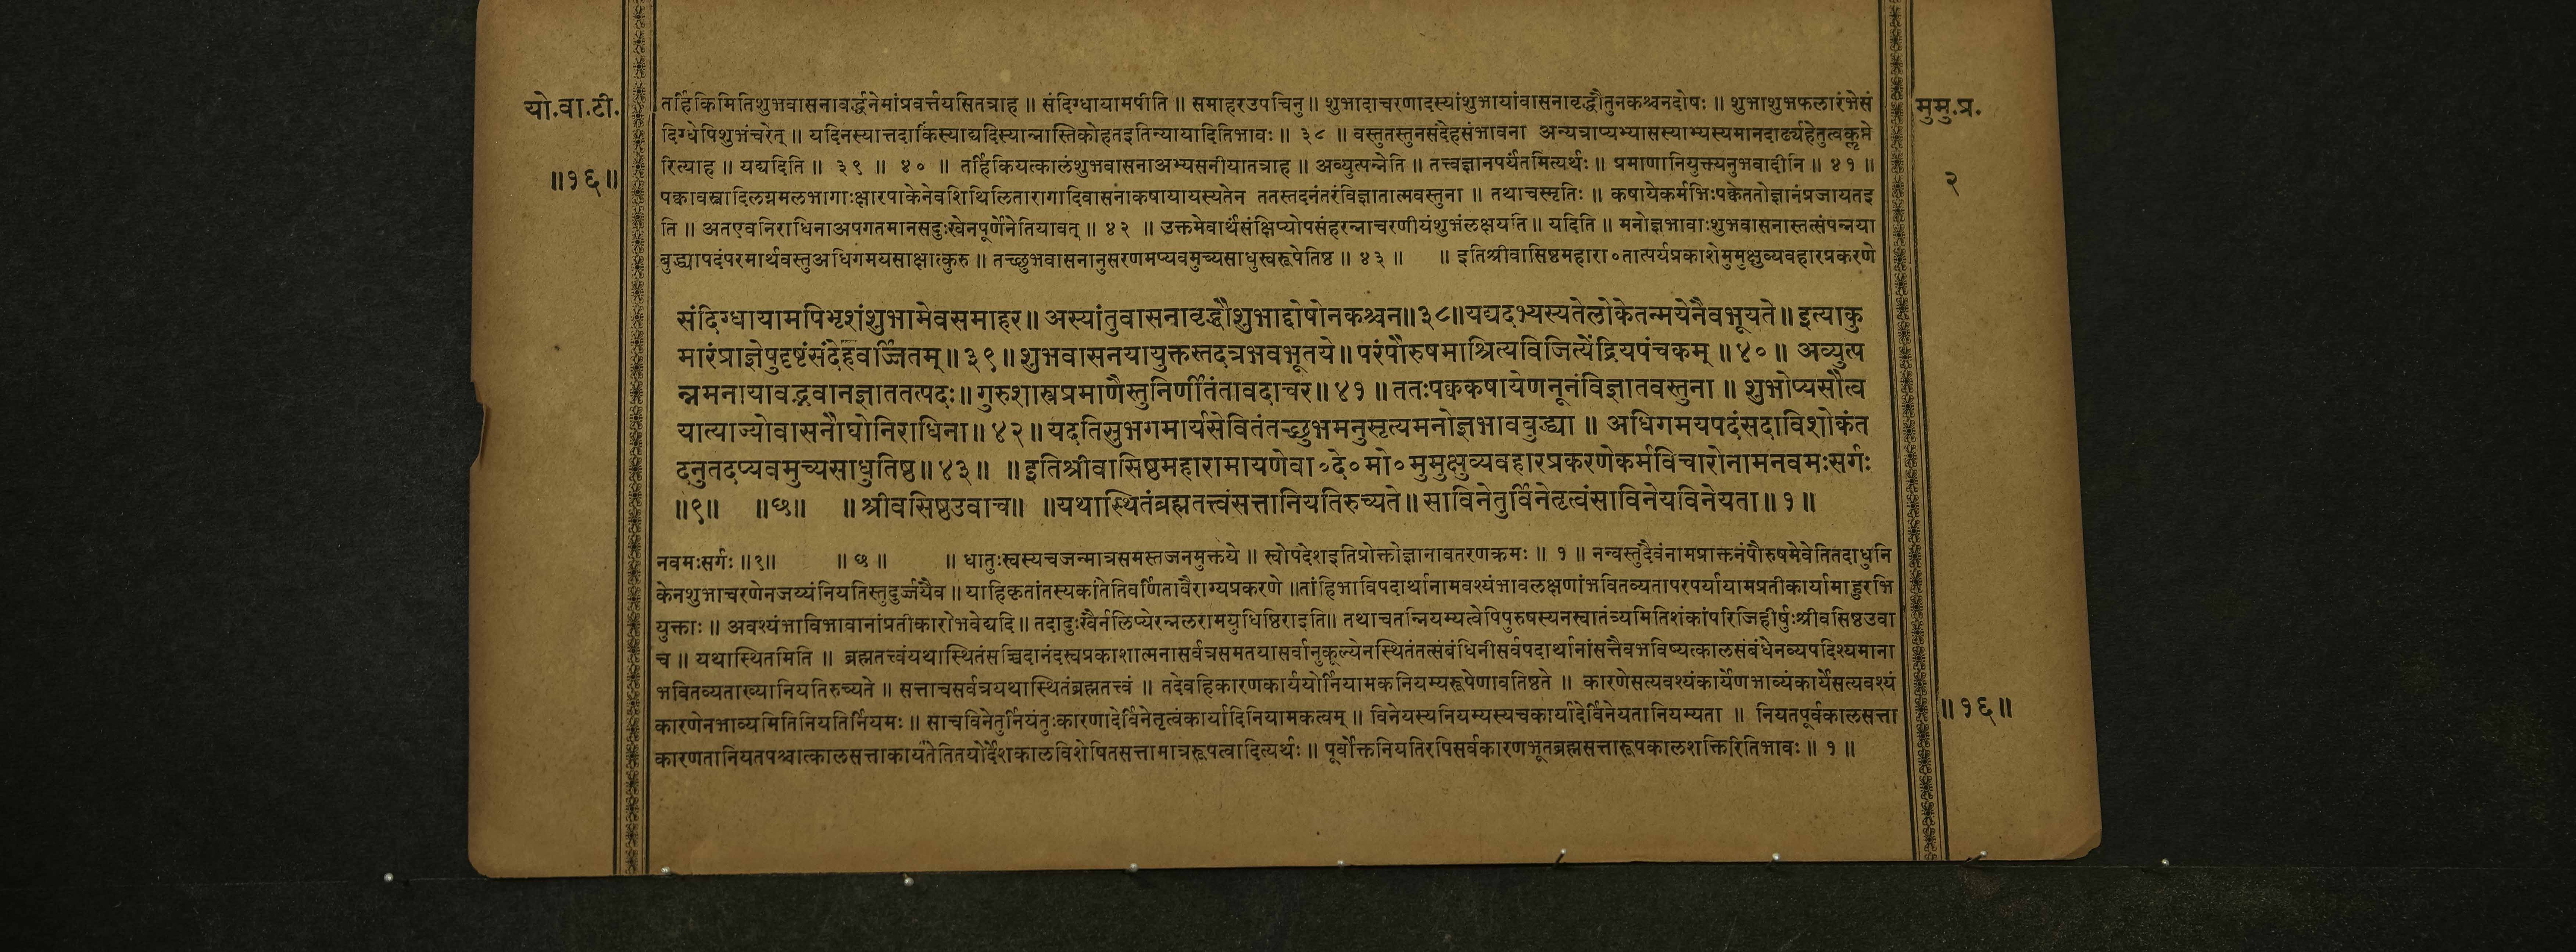 यो.वा.टी.
॥१६॥
मुमु.प्र.
२
तर्हिकिमितिशुभवासनावर्द्धनेमांप्रवर्त्तयसितत्राह ॥ संदिग्धायामपीति ॥ समाहरउपचिनु ॥ शुभादाचरणादस्यांशुभायांवासनावृद्धौतुनकश्चनदोषः ॥ शुभाशुभफलारंभेसं
दिग्धेपिशुभंचरेत् ॥ यदिनस्यात्तदाकिंस्याद्यदिस्यान्नास्तिकोहतइतिन्यायादितिभावः ॥ ३८ ॥ वस्तुतस्तुनसंदेहसंभावना अन्यत्राप्यभ्यासस्याभ्यस्यमानदार्ढ्यहेतुत्वक्लृप्ते
रित्याह ॥ यद्यदिति ॥ ३९ ॥ ४० ॥ तर्हिकियत्कालंशुभवासनाअभ्यसनीयातत्राह ॥ अव्युत्पन्नेति ॥ तत्त्वज्ञानपर्यंतमित्यर्थः ॥ प्रमाणानियुक्तयनुभवादीनि ॥ ४१ ॥
पक्कावस्त्रादिलग्नमलभागाःक्षारपाकेनेवशिथिलितारागादिवासनाकषायायस्यतेन ततस्तदनंतरंविज्ञातात्मवस्तुना ॥ तथाचस्मृतिः ॥ कषायेकर्मभिःपक्केततोज्ञानंप्रजायतइ
ति ॥ अतएवनिराधिनाअपगतमानसदुःखेनपूर्णेनेतियावत् ॥ ४२ ॥ उक्तमेवार्थंसंक्षिप्योपसंहरन्नाचरणीयंशुभंलक्षयति ॥ यदिति ॥ मनोज्ञभावाःशुभवासनास्तत्संपन्नया
बुद्ध्यापदंपरमार्थवस्तुअधिगमयसाक्षात्कुरु ॥ तच्छुभवासनानुसरणमप्यवमुच्यसाधुस्वरूपेतिष्ठ ॥ ४३ ॥ ॥ इतिश्रीवासिष्ठमहारा०तात्पर्यप्रकाशेमुमुक्षुव्यवहारप्रकरणे
संदिग्धायामपिभृशंशुभामेवसमाहर ॥ अस्यांतुवासनावृद्धौशुभाद्दोषोनकश्चन॥३८॥यद्यदभ्यस्यतेलोकेतन्मयेनैवभूयते ॥ इत्याकु
मारंप्राज्ञेपुदृष्टंसंदेहवर्ज्जितम् ॥ ३९ ॥ शुभवासनयायुक्तस्तदत्रभवभूतये ॥ परंपौरुषमाश्रित्यविजित्येंद्रियपंचकम् ॥ ४० ॥ अव्युत्प
न्नमनायावद्भवानज्ञाततत्पदः ॥ गुरुशास्त्रप्रमाणैस्तुनिर्णीतंतावदाचर ॥ ४१ ॥ ततःपक्ककषायेणनूनंविज्ञातवस्तुना ॥ शुभोप्यसौत्व
यात्याज्योवासनौघोनिराधिना ॥ ४२ ॥ यदतिसुभगमार्यसेवितंतच्छुभमनुसृत्यमनोज्ञभावबुद्ध्या ॥ अधिगमयपदंसदाविशोकंत
दनुतदप्यवमुच्यसाधुतिष्ठ ॥ ४३ ॥ ॥ इतिश्रीवासिष्ठमहारामायणेवा०दे०मो०मुमुक्षुव्यवहारप्रकरणेकर्मविचारोनामनवमःसर्गः
॥९॥ ॥छ॥ ॥ श्रीवसिष्ठउवाच॥ ॥यथास्थितंब्रह्मतत्त्वंसत्तानियतिरुच्यते ॥ साविनेतुर्विनेतृत्वंसाविनेयविनेयता ॥ १ ॥
नवमःसर्गः ॥९॥ ॥ छ ॥ ॥ धातुःस्वस्यचजन्मात्रसमस्तजनमुक्तये ॥ स्वोपदेशइतिप्रोक्तोज्ञानावतरणक्रमः ॥ १ ॥ नन्वस्तुदैवंनामप्राक्तनंपौरुषमेवेतितदाधुनि
केनशुभाचरणेनजय्यंनियतिस्तुदुर्ज्जयैव ॥ याहिकृतांतस्यकांतेतिवर्णितावैराग्यप्रकरणे ॥तांहिभाविपदार्थानामवश्यंभावलक्षणांभवितव्यतापरपर्यायामप्रतीकार्यामाहुरभि
युक्ताः ॥ अवश्यंभाविभावानांप्रतीकारोभवेद्यदि ॥ तदादुःखैर्नलिप्येरन्नलरामयुधिष्ठिराइति॥ तथाचतन्नियम्यत्वेपिपुरुषस्यनस्वातंत्र्यमितिशंकांपरिजिहीर्षुःश्रीवसिष्ठउवा
च ॥ यथास्थितमिति ॥ ब्रह्मतत्त्वंयथास्थितंसच्चिदानंदस्वप्रकाशात्मनासर्वत्रसमतयासर्वानुकूल्येनस्थितंतत्संबंधिनीसर्वपदार्थानांसत्तैवभविष्यत्कालसंबंधेनव्यपदिश्यमाना
भवितव्यताख्यानियतिरुच्यते ॥ सत्ताचसर्वत्रयथास्थितंब्रह्मतत्त्वं ॥ तदेवहिकारणकार्ययोर्नियामकनियम्यरूपेणावतिष्ठते ॥ कारणेसत्यवश्यंकार्येणभाव्यंकार्येसत्यवश्यं
कारणेनभाव्यमितिनियतिर्नियमः ॥ साचविनेतुर्नियंतुःकारणादेर्विनेतृत्वंकार्यादिनियामकत्वम् ॥ विनेयस्यनियम्यस्यचकार्यादेर्विनेयतानियम्यता ॥ नियतपूर्वकालसत्ता
कारणतानियतपश्चात्कालसत्ताकार्यतेतितयोर्देशकालविशेषितसत्तामात्ररूपत्वादित्यर्थः ॥ पूर्वोक्तनियतिरपिसर्वकारणभूतब्रह्मसत्तारूपकालशक्तिरितिभावः ॥ १ ॥
॥१६॥